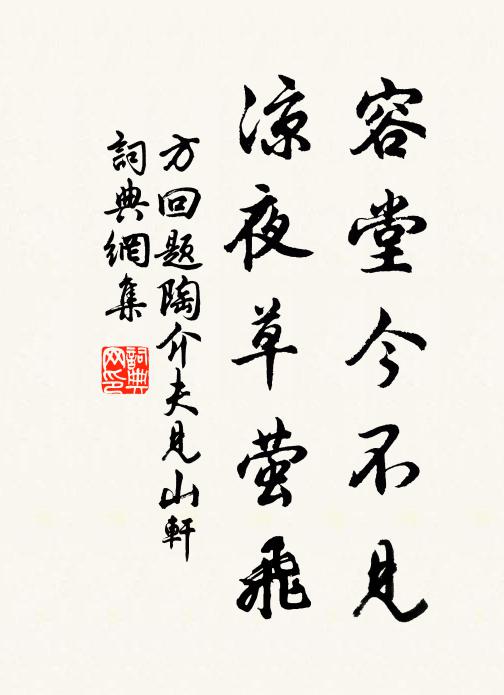 容堂今不見
凉夜草萤飛
方回题陶介夫見山軒
詞典網集
詞典網印